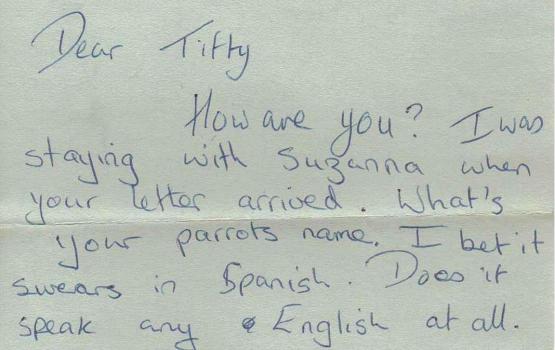 Dear Titty
How are you? I was
staying with Suzanna when
your letter arrived. What's
your parrots name. I bet it
swears in Spanish. Does it
speak any English at all.